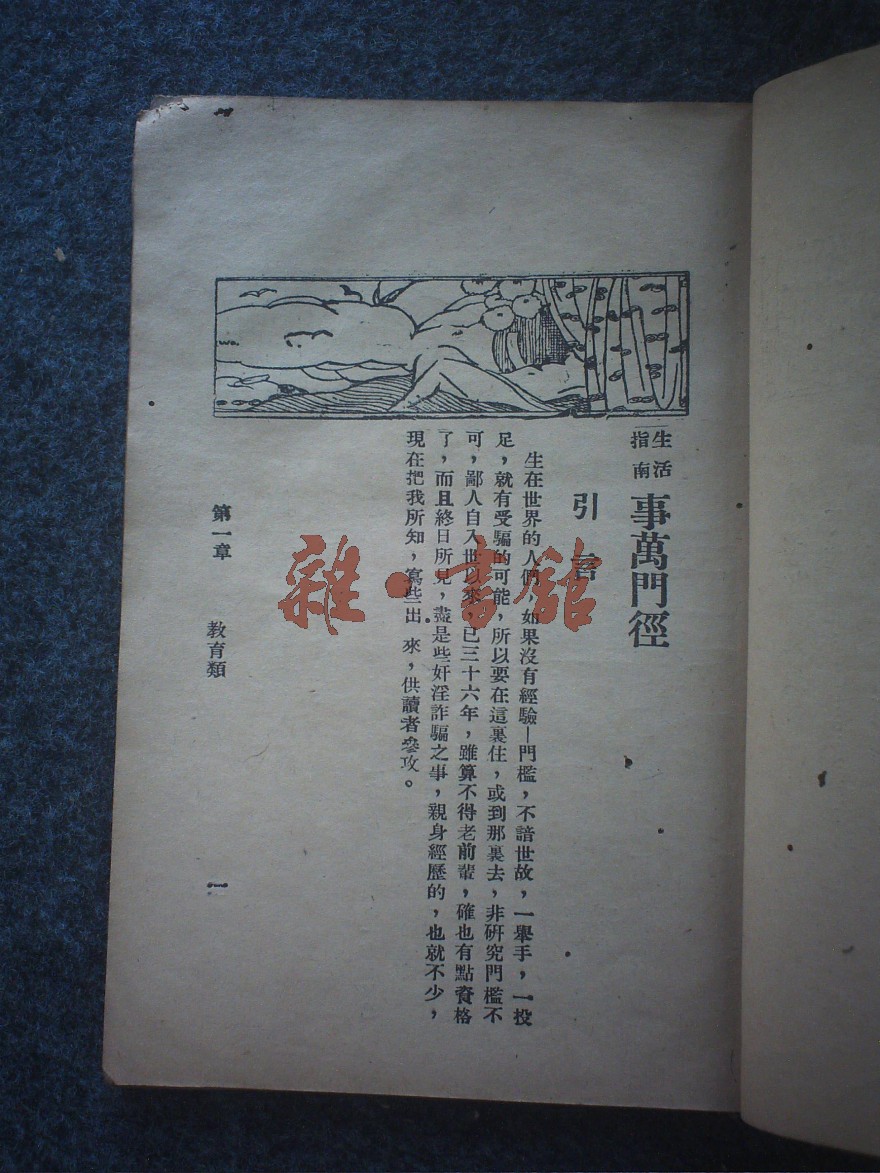 生活指南
事萬門徑
引言
生在世界的人們，如果沒有經驗—門檻，不諳世故，一舉手，一投
足，就有受騙的可能，所以要在這裏住，或到那裏去，非研究門檻不
可，鄙人自入世以來，已三十六年，雖算不得老前輩，確也有點資格
了，而且終日所見，盡是些奸淫詐騙之事，親身經歷的，也就不少，
現在把我所知，寫些出 來，供讀者參攻。
第一章 教育類
一
雜·書館